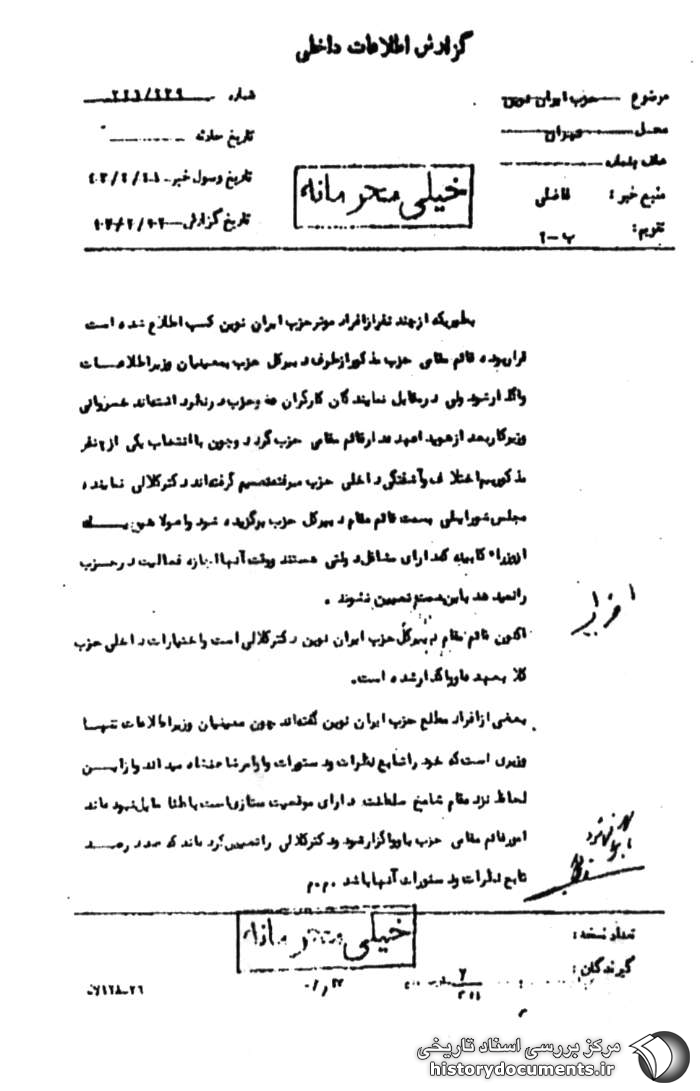 گزارش اطلاعات داخلی
موضوع حزب ایران نوین
شماره
محل تهران
تاریخ حادثه
تاریخ وصول خبر
منبع خبر : فاضلی
تاریخ گزارش
تقویم: ب-۲
خیلی محرمانه
بطوریکه از چند نفر از افراد موثر حزب ایران نوین کسب اطلاع شده است
قرار بوده قائم مقامی حزب مذکور از طرف دبیرکل حزب بمعینیان وزیر اطلاعات
واگذار شود ولی در مقابل نمایندگان کارگران عضو حزب در نظر داشته‌اند خسروانی
وزیر کار بعد از هویدا عهده‌دار قائم مقامی حزب گردد و چون با انتخاب یکی از ۲ نفر
مذکور بیم اختلاف و آشفتگی داخلی حزب میرفته تصمیم گرفته‌اند دکتر کلالی نماینده
مجلس شورایملی بسمت قائم مقام دبیرکل حزب برگزیده شود و اصولا هیچ یک
از وزراء کابینه که دارای مشاغل دولتی هستند و وقت آنها اجازه فعالیت در حزب
را نمیدهد باین سمت تعیین نشوند .
اکنون قائم مقام دبیرکل حزب ایران نوین دکتر کلالی است و اختیارات داخلی حزب
کلا بعهده او واگذار شده است.
بعضی از افراد مطلع حزب ایران نوین گفته‌اند چون معینیان وزیر اطلاعات تنها
وزیری است که خود را تابع نظرات و دستورات و اوامر شاهنشاه میداند و از این
لحاظ نزد مقام شامخ سلطنت دارای موقعیت ممتازی است باطنا مایل نبوده‌اند
امور قائم مقامی حزب باو واگذار شود و دکتر کلالی را تعیین کرده‌اند که صددرصد
تابع نظرات و دستورات آنها باشد .م.م
احزاب
خیلی محرمانه
تعداد نسخه :
گیرندگان :
مرکز بررسی اسناد تاریخی
historydocuments.ir